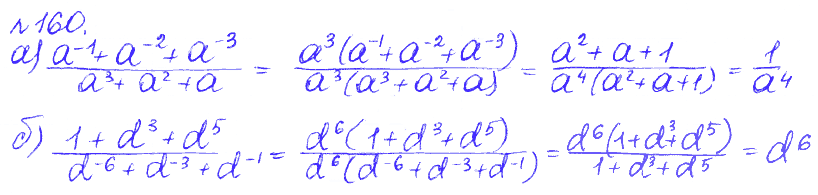 №160.
а) (a⁻¹ + a⁻² + a⁻³)/(a³ + a² + a) = (a³(a⁻¹ + a⁻² + a⁻³))/(a³(a³ + a² + a)) = (a² + a + 1)/(a⁴(a² + a + 1)) = 1/a⁴
б) (1 + d³ + d⁵)/(d⁻⁶ + d⁻³ + d⁻¹) = (d⁶(1 + d³ + d⁵))/(d⁶(d⁻⁶ + d⁻³ + d⁻¹)) = (d⁶(1 + d³ + d⁵))/(1 + d³ + d⁵) = d⁶